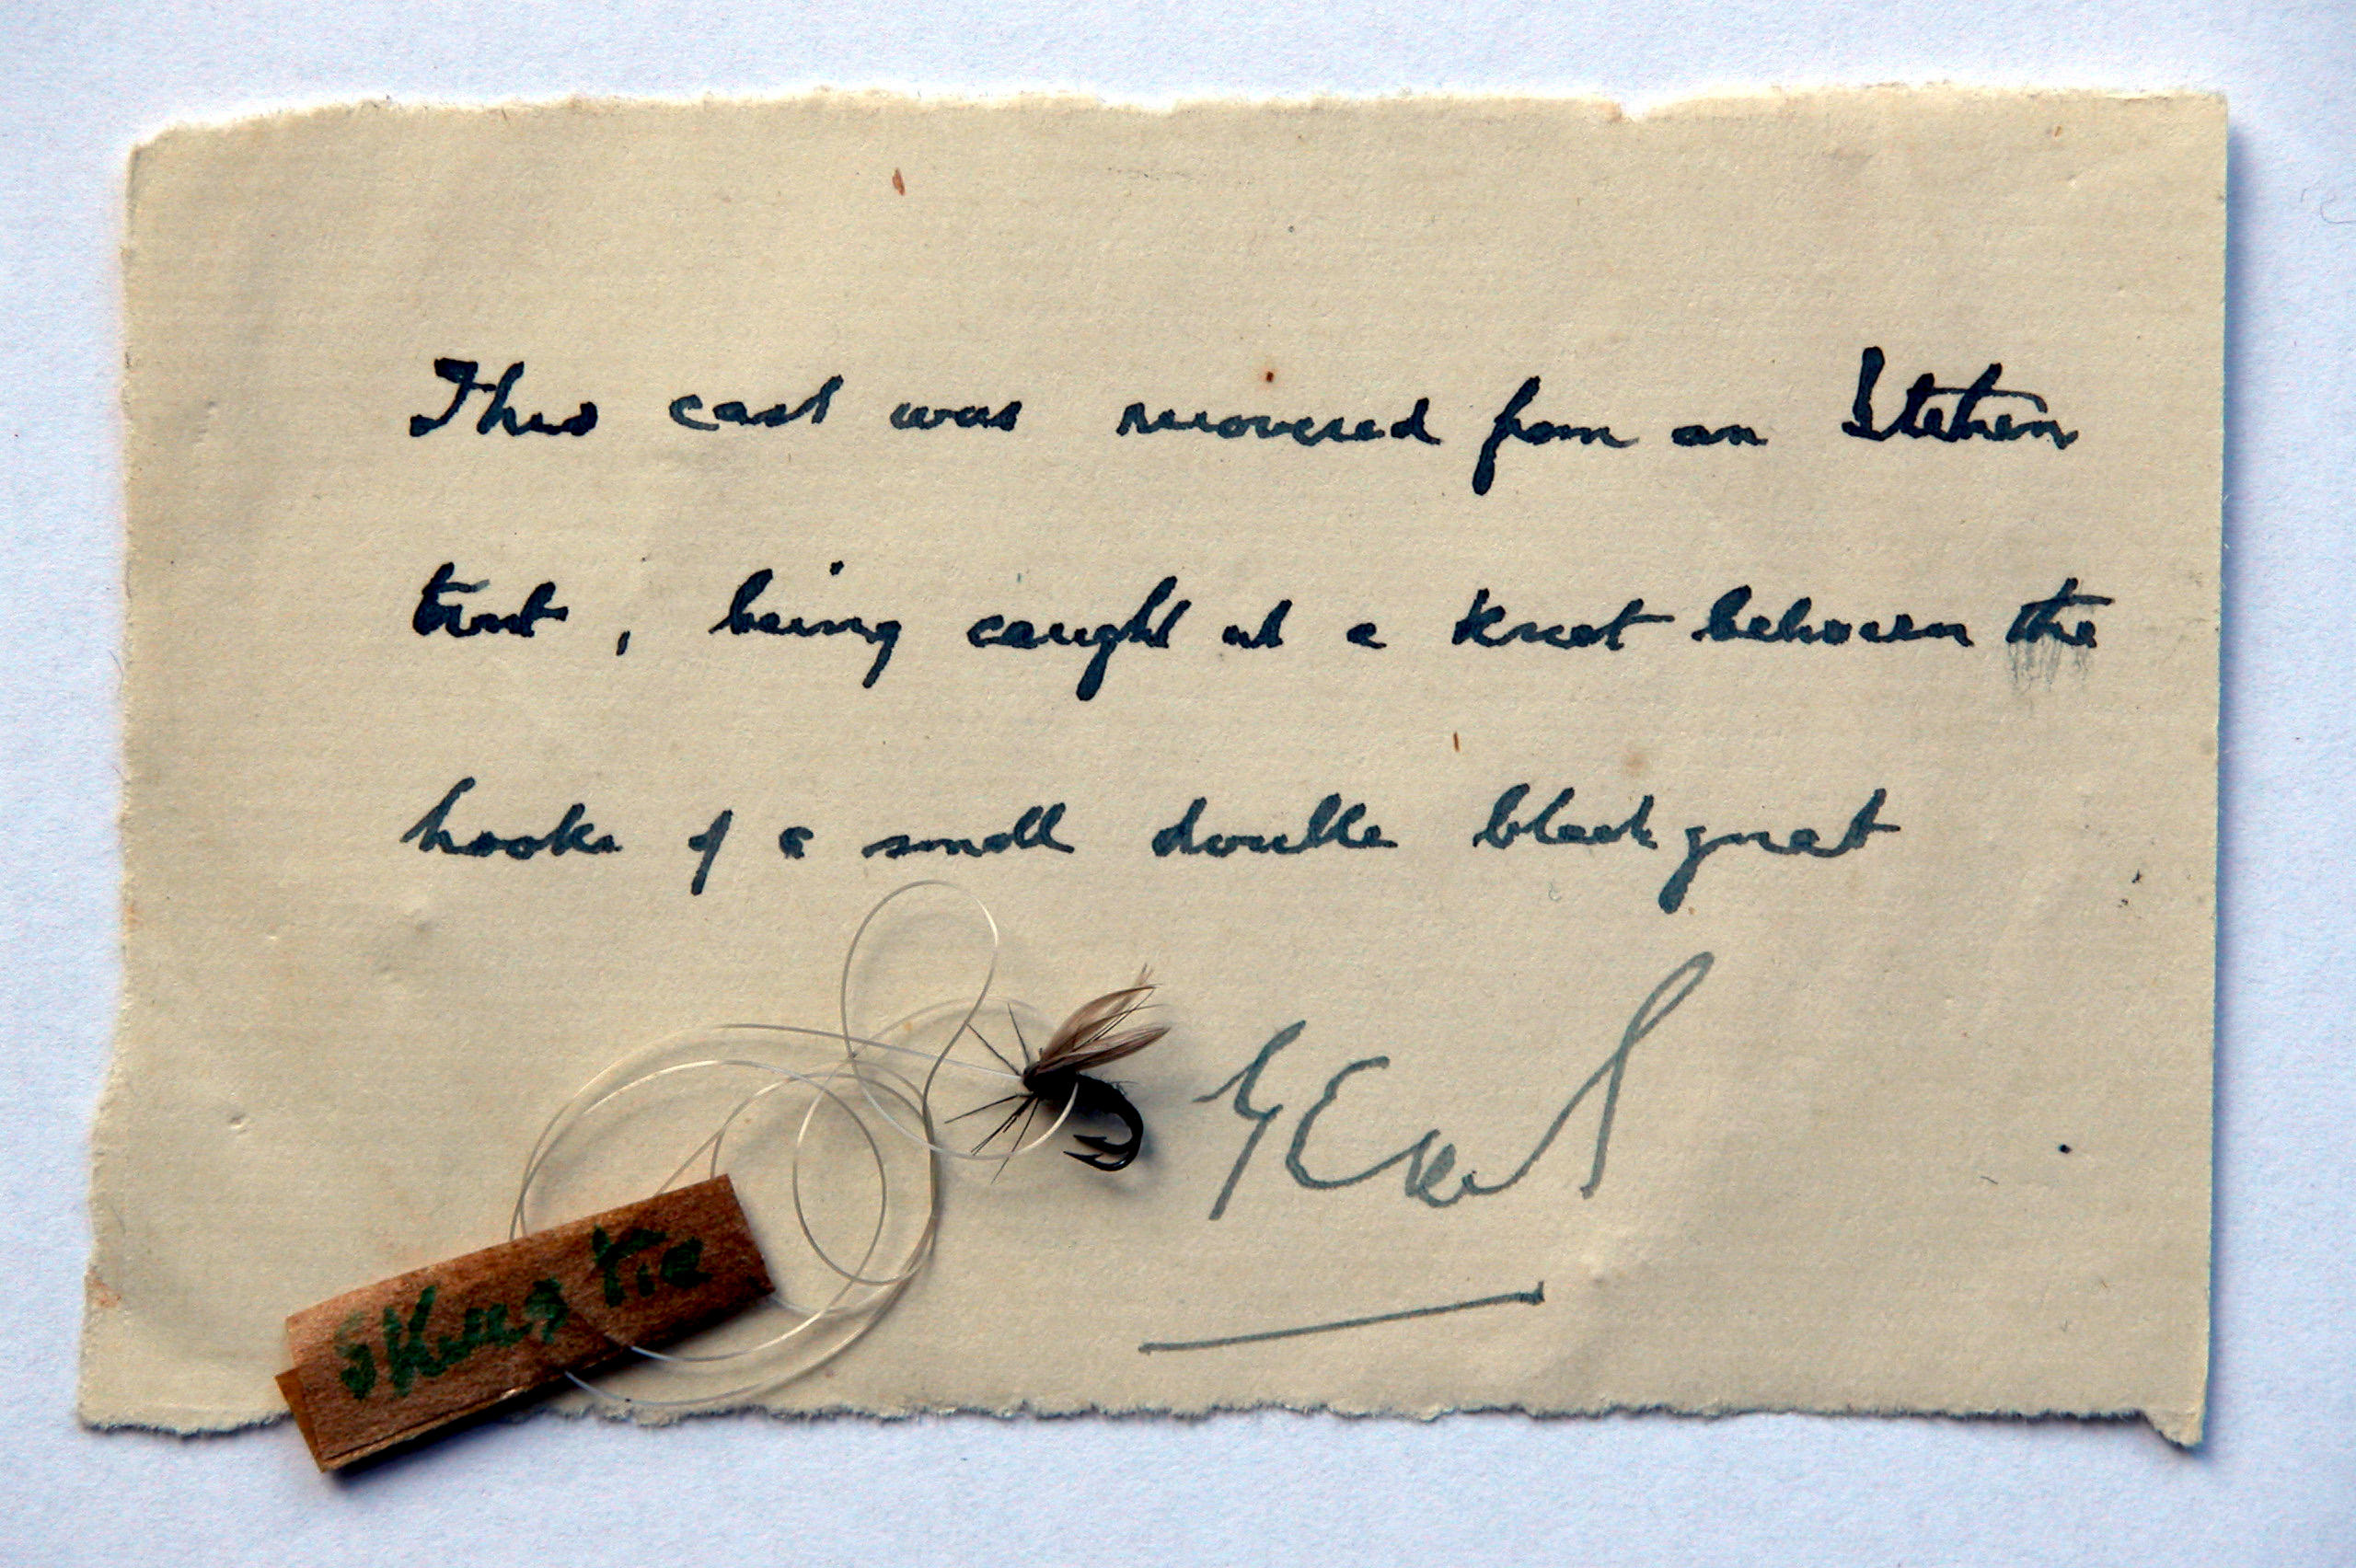 This cast was recovered from an Itchen
trout, being caught at a knot between the
hooks of a small double black gnat
Skues tie